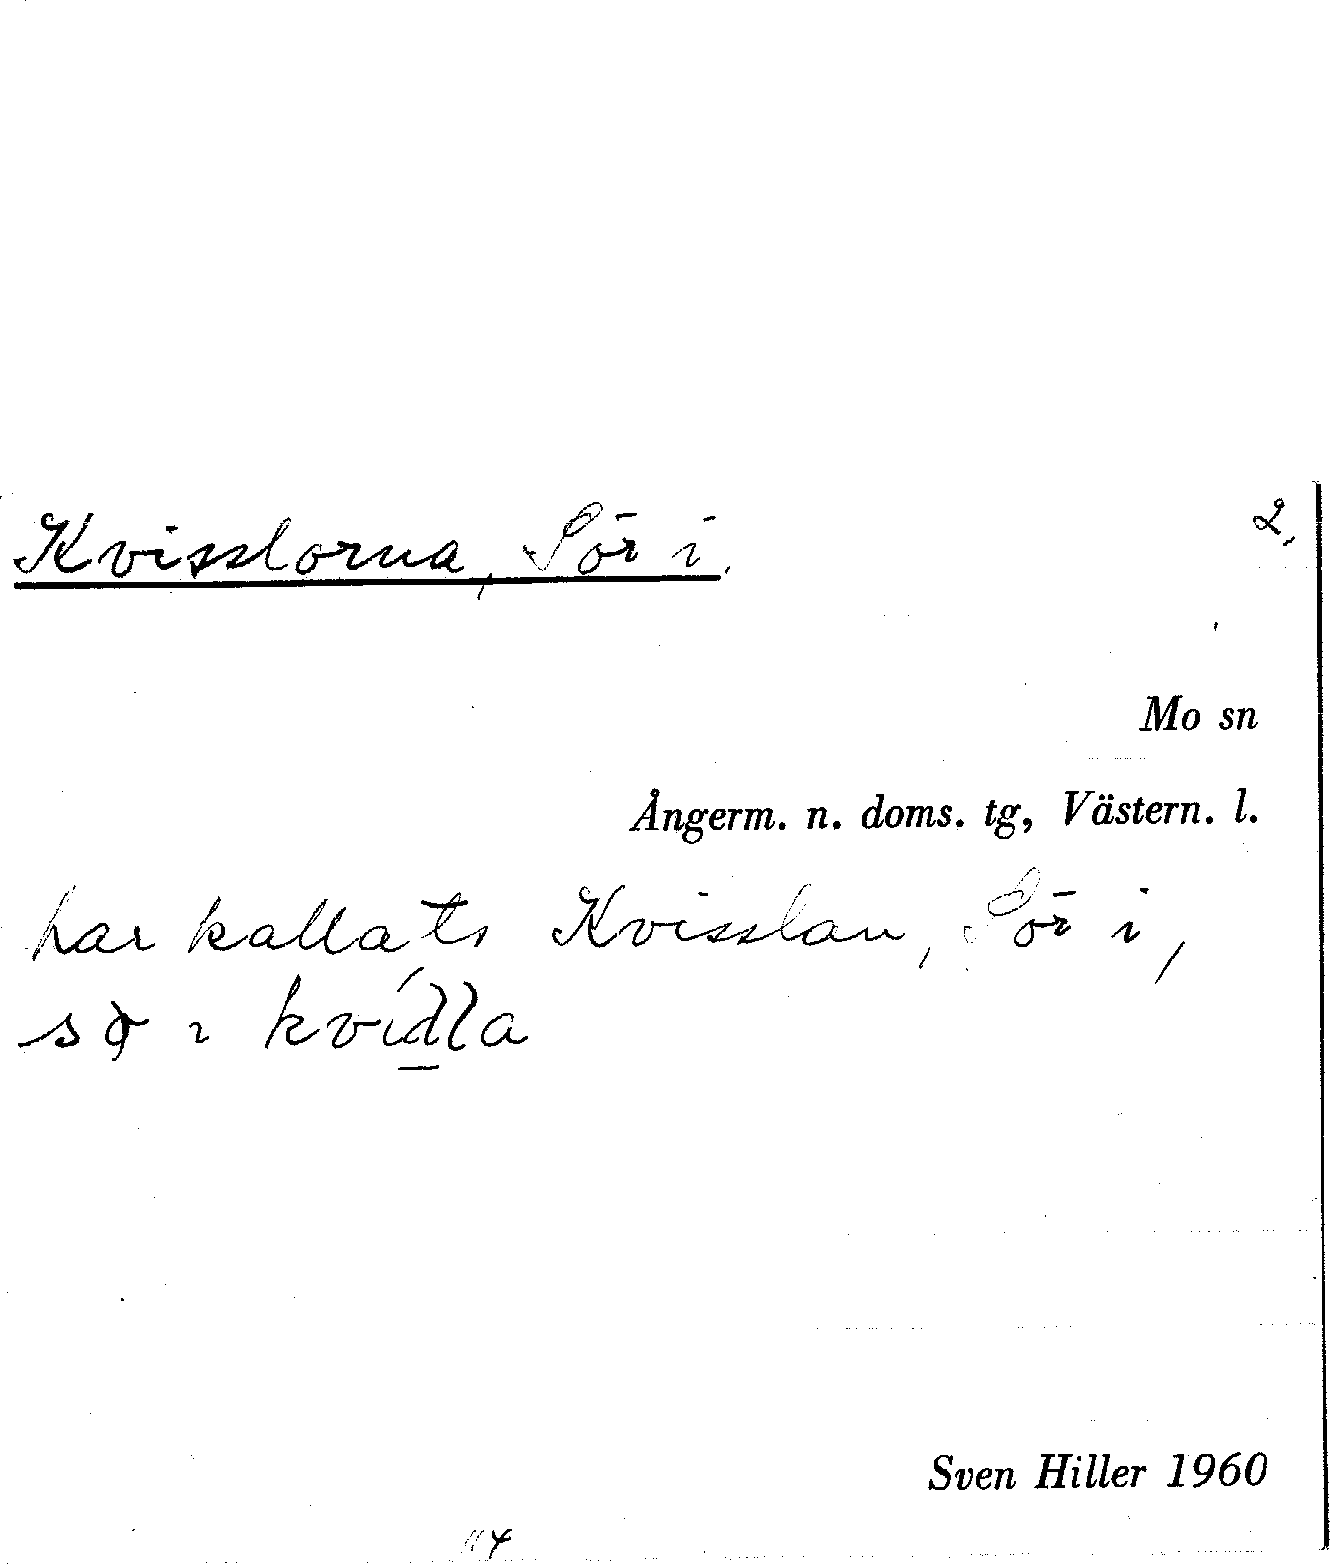 Kvisslorna, Sör i. 2.
Mo sn
Ångerm. n. doms. tg, Västern. l.
har kallats Kvisslan, Sör i,
Sven Hiller 1960